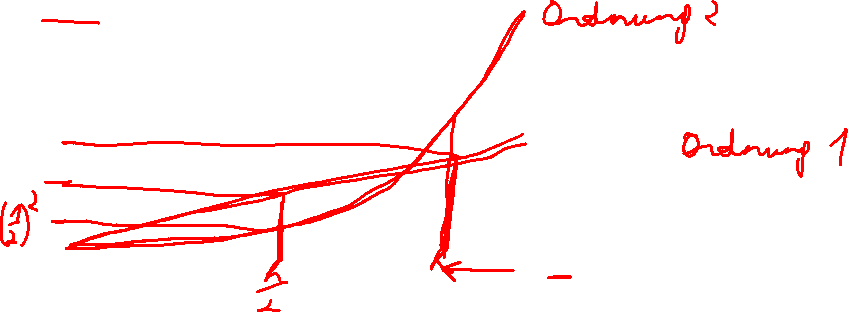 Ordnung 2
Ordnung 1
(1/2)²
h/2
h